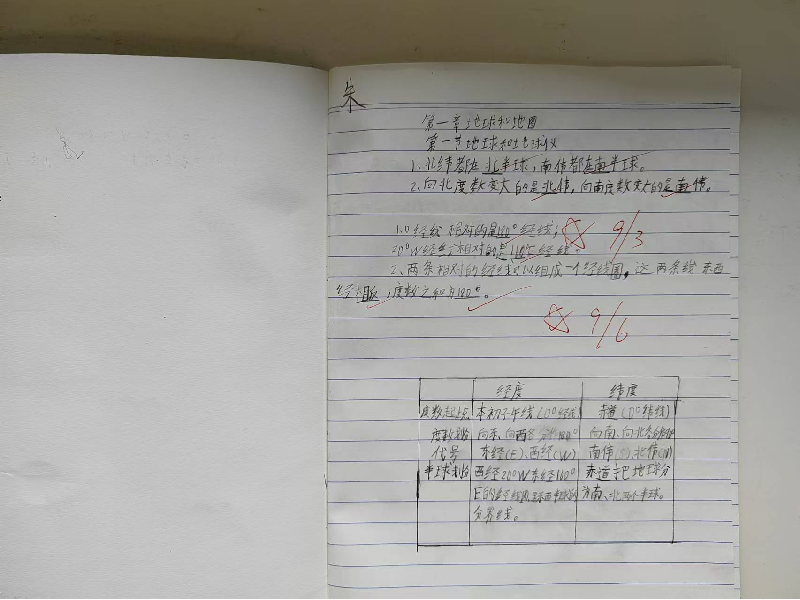 第一章地球和地图
第一节地球和地球仪
1.北纬都在北半球,南纬都在南半球。
2.向北度数变大的是北纬,向南度数变大的是南纬。
1.0°经线相对的是180°经线;
9/3
20°W经线相对的是160°E经线。
2、两条相对的经线可以组成一个经线圈,这两条线东西
经相反,度数之和为180°。
9/6
经度 纬度
度数起点 本初子午线(0°经线) 赤道(0°纬线)
度数划分 向东、向西各 180° 向南、向北各
代号 东经(E)、西经(W) 南纬(S)、北纬(N)
半球划分 西经20°W东经160° 赤道把地球分
E的经线圈是东西半球的 为南、北两个半球。
分界线。